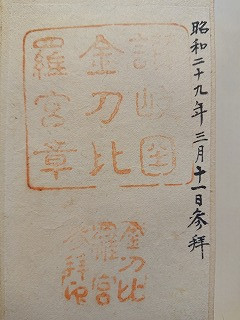 昭和二十九年三月十一日参拜
讃岐國
金刀比
羅宮章
金刀比
羅宮
参拜印